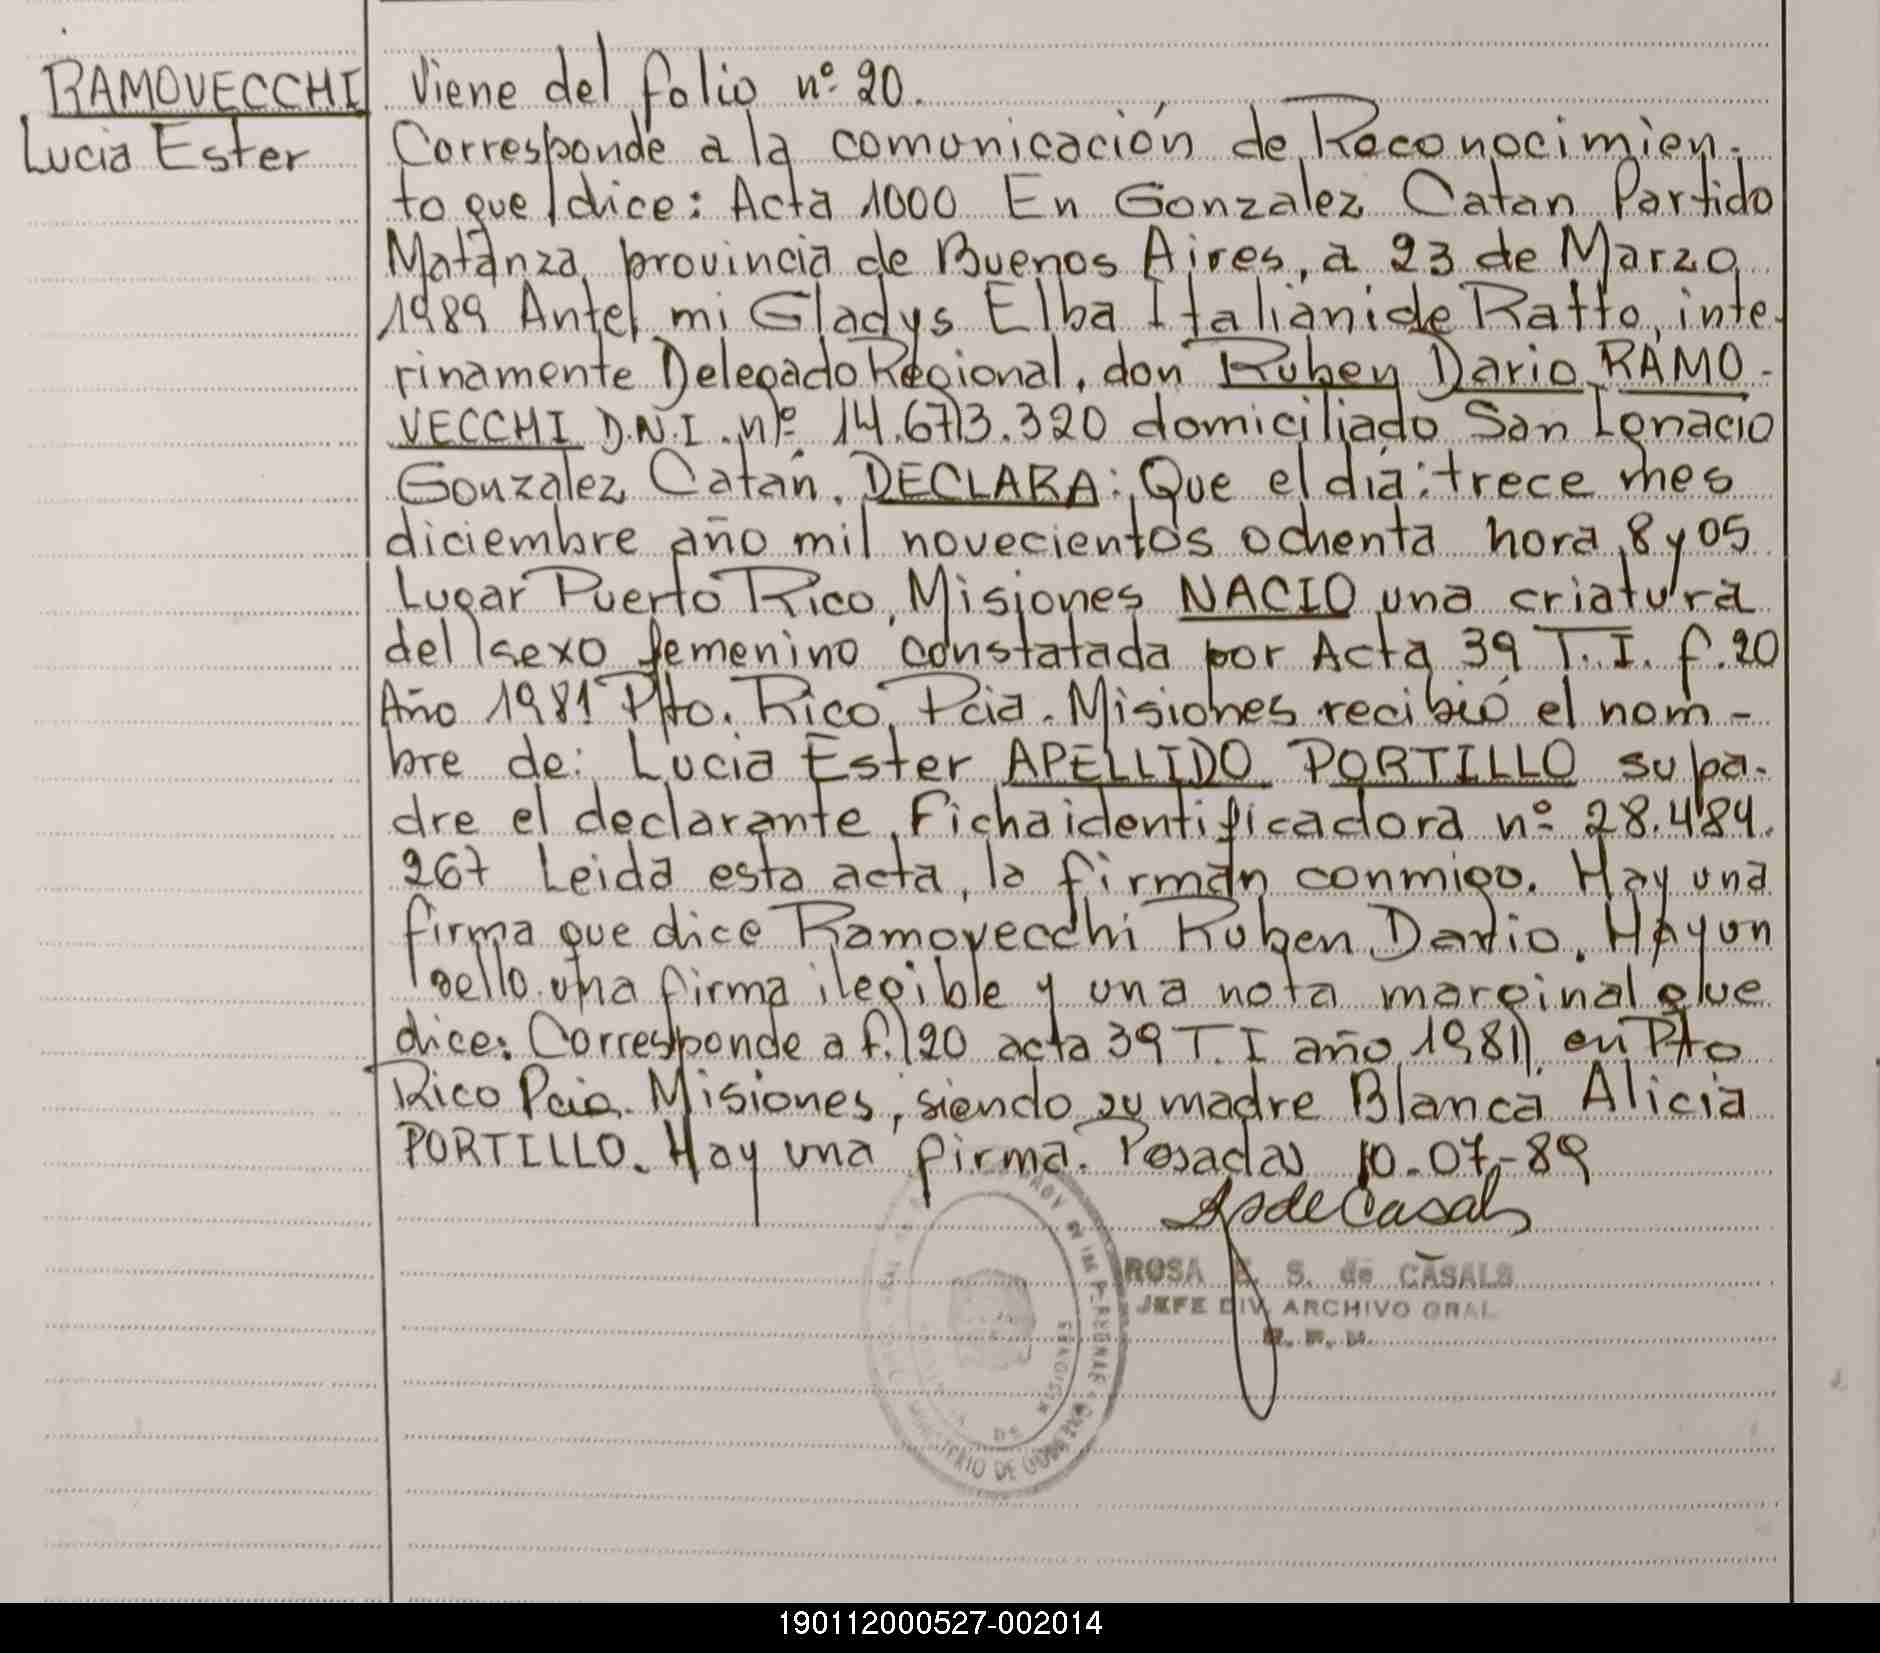 RAMOVECCHI
Lucia Ester
Viene del folio nº 20.
Corresponde a la comunicación de Reconocimien-
to que dice: Acta 1000 En Gonzalez Catan Partido
Matanza provincia de Buenos Aires, a 23 de Marzo
1989 Ante mi Gladys Elba Italiani de Ratto, inte-
rinamente Delegado Regional, don Ruben Dario RAMO-
VECCHI D.N.I. nº 14.673.320 domiciliado San Ignacio
Gonzalez Catán. DECLARA: Que el día: trece mes
diciembre año mil novecientos ochenta hora 8 y 05
Lugar Puerto Rico, Misiones NACIO una criatura
del sexo femenino constatada por Acta 39 T.I. f.20
Año 1981 Pto. Rico, Pcia. Misiones recibió el nom-
bre de: Lucia Ester APELLIDO PORTILLO su pa-
dre el declarante, Ficha identificadora nº 28.484.
267 Leida esta acta, la firman conmigo. Hay una
firma que dice Ramovecchi Ruben Dario. Hay un
sello una firma ilegible y una nota marginal que
dice: Corresponde a f. 20 acta 39 T.I año 1981 en Pto
Rico Pcia. Misiones, siendo su madre Blanca Alicia
PORTILLO. Hay una firma. Posadas 10-07-89
de Casals
ROSA S. de CASALS
JEFE DIV. ARCHIVO GRAL
MINISTERIO DE GOBIERNO
MISIONES
190112000527-002014